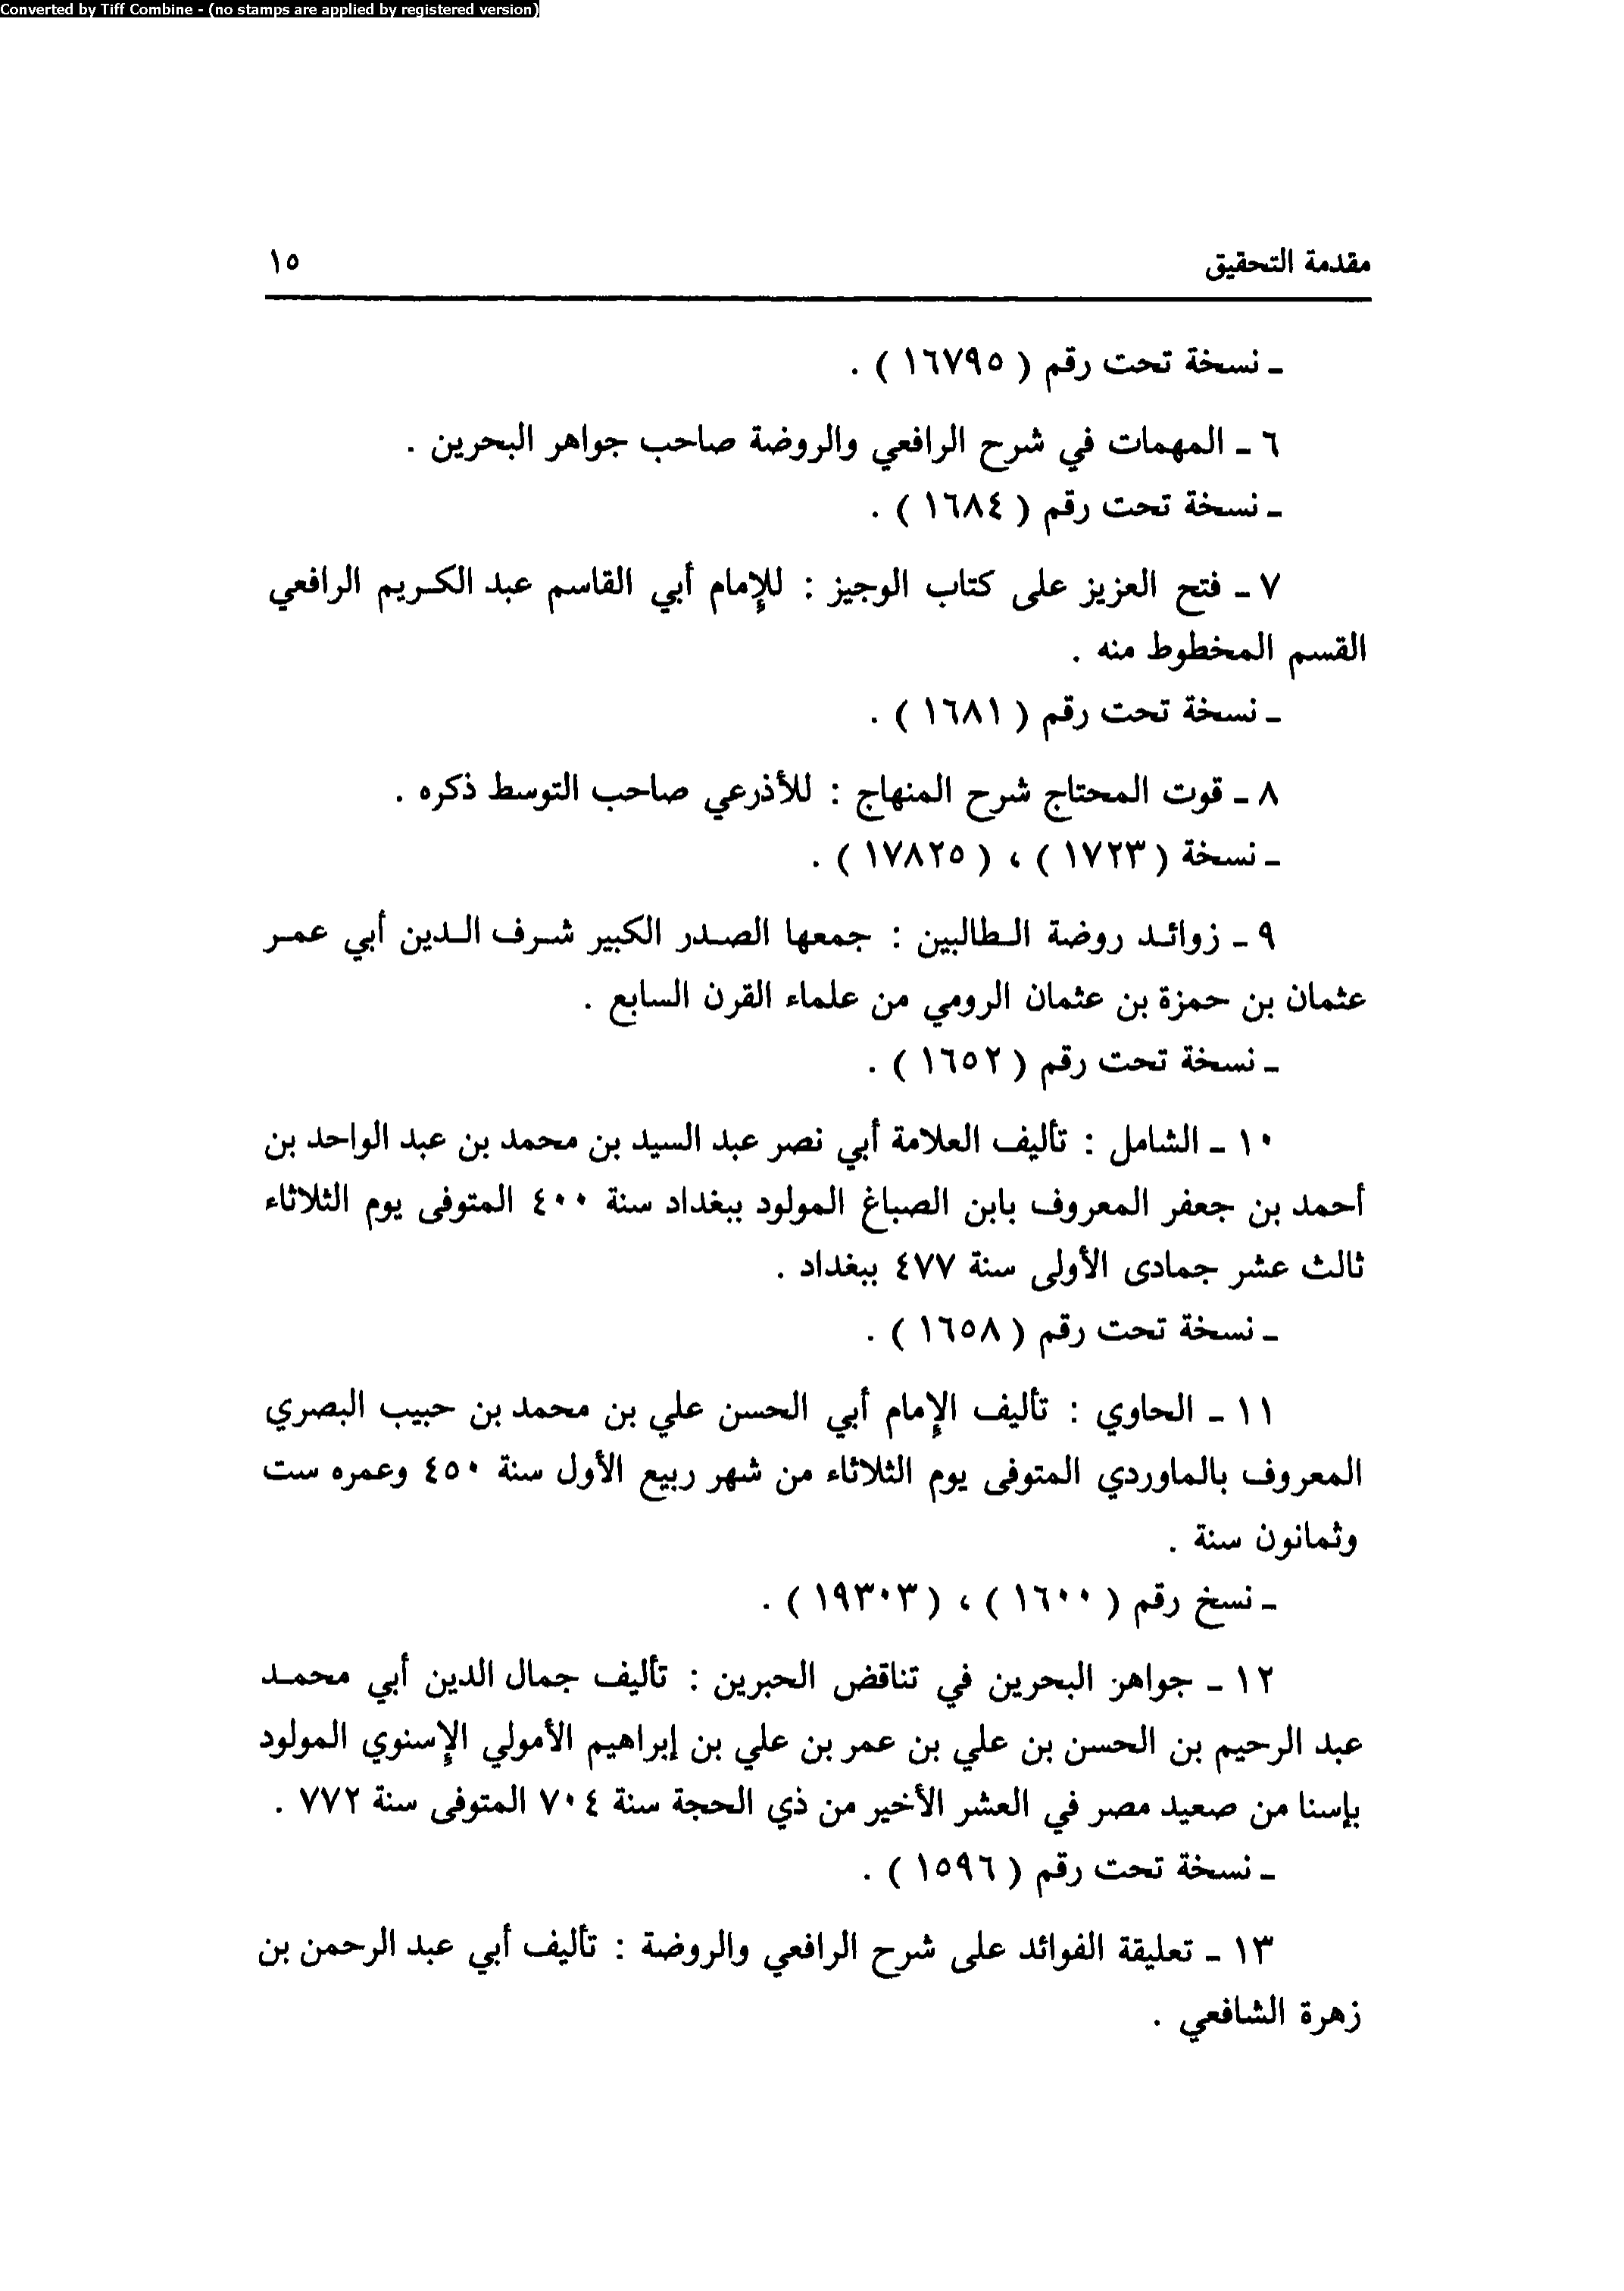 Converted by Tiff Combine - (no stamps are applied by registered version)
مقدمة التحقيق ١٥
ـ نسخة تحت رقم ( ١٦٧٩٥ ) .
٦ ـ المهمات في شرح الرافعي والروضة صاحب جواهر البحرين .
ـ نسخة تحت رقم ( ١٦٨٤ ) .
٧ ـ فتح العزيز على كتاب الوجيز : للإمام أبي القاسم عبد الكريم الرافعي
القسم المخطوط منه .
ـ نسخة تحت رقم ( ١٦٨١ ) .
٨ ـ قوت المحتاج شرح المنهاج : للأذرعي صاحب التوسط ذكره .
ـ نسخة ( ١٧٢٣ ) ، ( ١٧٨٢٥ ) .
٩ ـ زوائد روضة الطالبين : جمعها الصدر الكبير شرف الدين أبي عمر
عثمان بن حمزة بن عثمان الرومي من علماء القرن السابع .
ـ نسخة تحت رقم ( ١٦٥٢ ) .
١٠ ـ الشامل : تأليف العلامة أبي نصر عبد السيد بن محمد بن عبد الواحد بن
أحمد بن جعفر المعروف بابن الصباغ المولود ببغداد سنة ٤٠٠ المتوفى يوم الثلاثاء
ثالث عشر جمادى الأولى سنة ٤٧٧ ببغداد .
ـ نسخة تحت رقم ( ١٦٥٨ ) .
١١ ـ الحاوي : تأليف الإمام أبي الحسن علي بن محمد بن حبيب البصري
المعروف بالماوردي المتوفى يوم الثلاثاء من شهر ربيع الأول سنة ٤٥٠ وعمره ست
وثمانون سنة .
ـ نسخ رقم ( ١٦٠٠ ) ، ( ١٩٣٠٣ ) .
١٢ ـ جواهر البحرين في تناقض الحبرين : تأليف جمال الدين أبي محمد
عبد الرحيم بن الحسن بن علي بن عمر بن علي بن إبراهيم الأمولي الإسنوي المولود
بإسنا من صعيد مصر في العشر الأخير من ذي الحجة سنة ٧٠٤ المتوفى سنة ٧٧٢ .
ـ نسخة تحت رقم ( ١٥٩٦ ) .
١٣ ـ تعليقة الفوائد على شرح الرافعي والروضة : تأليف أبي عبد الرحمن بن
زهرة الشافعي .